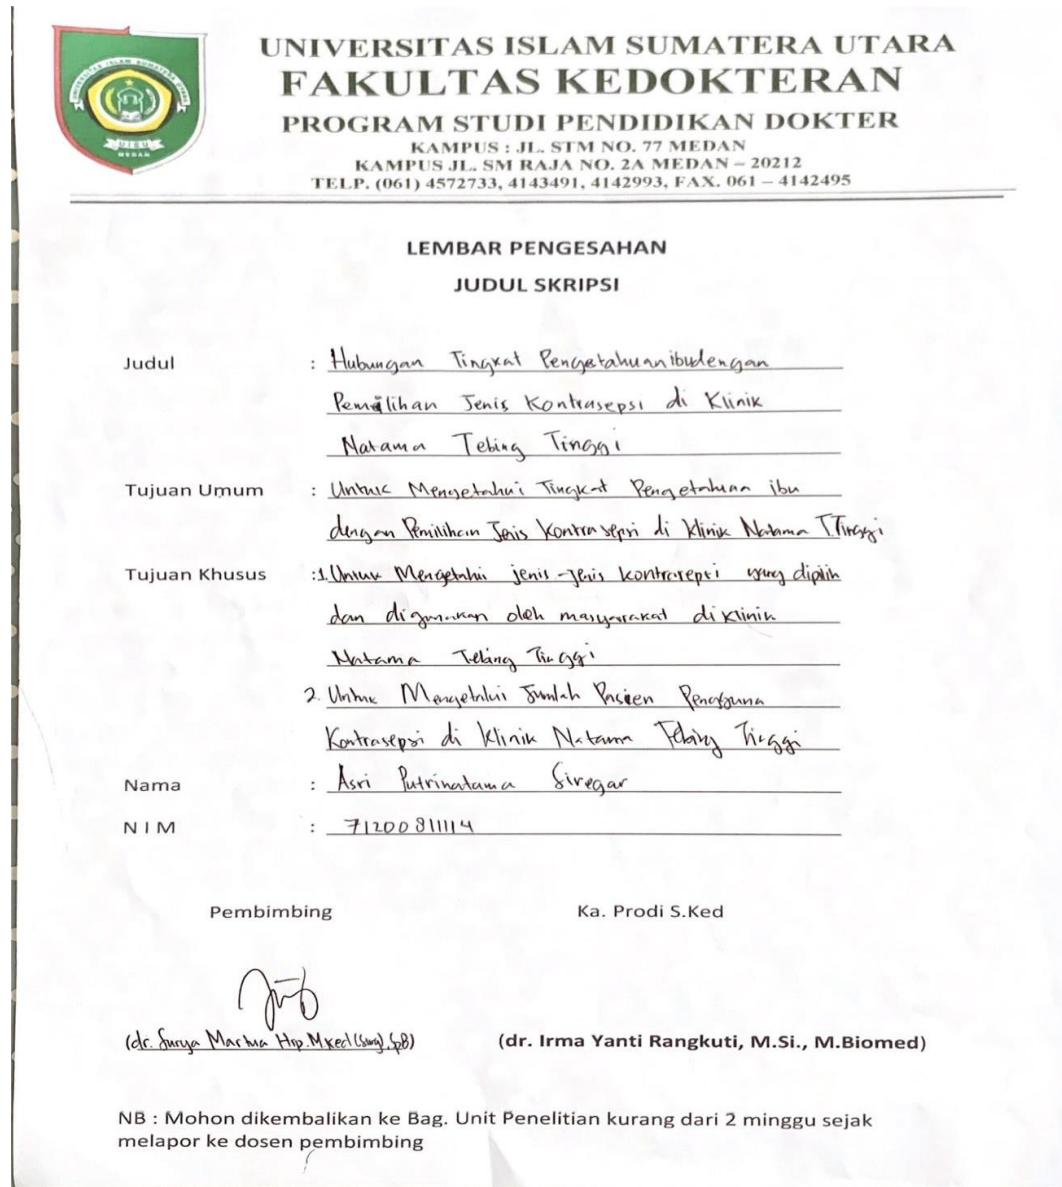 UNIVERSITAS ISLAM SUMATERA UTARA
FAKULTAS KEDOKTERAN
PROGRAM STUDI PENDIDIKAN DOKTER
KAMPUS : JL. STM NO. 77 MEDAN
KAMPUS JL. SM RAJA NO. 2A MEDAN – 20212
TELP. (061) 4572733, 4143491, 4142993, FAX. 061 – 4142495
UNIVERSITAS ISLAM SUMATERA UTARA
UISU
MEDAN
LEMBAR PENGESAHAN
JUDUL SKRIPSI
Judul : Hubungan Tingkat Pengetahuan ibu dengan
Pemilihan Jenis Kontrasepsi di Klinik
Natama Tebing Tinggi
Tujuan Umum : Untuk Mengetahui Tingkat Pengetahuan ibu
dengan Pemilihan Jenis Kontrasepsi di Klinik Natama T.Tinggi
Tujuan Khusus : 1. Untuk Mengetahui jenis-jenis kontrasepsi yang dipilih
dan digunakan oleh masyarakat di Klinik
Natama Tebing Tinggi
2. Untuk Mengetahui Jumlah Pasien Pengguna
Kontrasepsi di Klinik Natama Tebing Tinggi
Nama : Asri Putrinatama Siregar
NIM : 71200811114
Pembimbing Ka. Prodi S.Ked
(dr. Surya Martua Hrp. M.Ked (Surg). SpB) (dr. Irma Yanti Rangkuti, M.Si., M.Biomed)
NB : Mohon dikembalikan ke Bag. Unit Penelitian kurang dari 2 minggu sejak
melapor ke dosen pembimbing